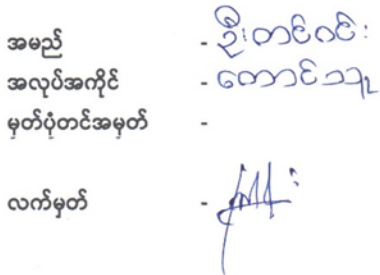 အမည် - ဦးတင်ဝင်း
အလုပ်အကိုင် - တောင်သူ
မှတ်ပုံတင်အမှတ် -
လက်မှတ် -